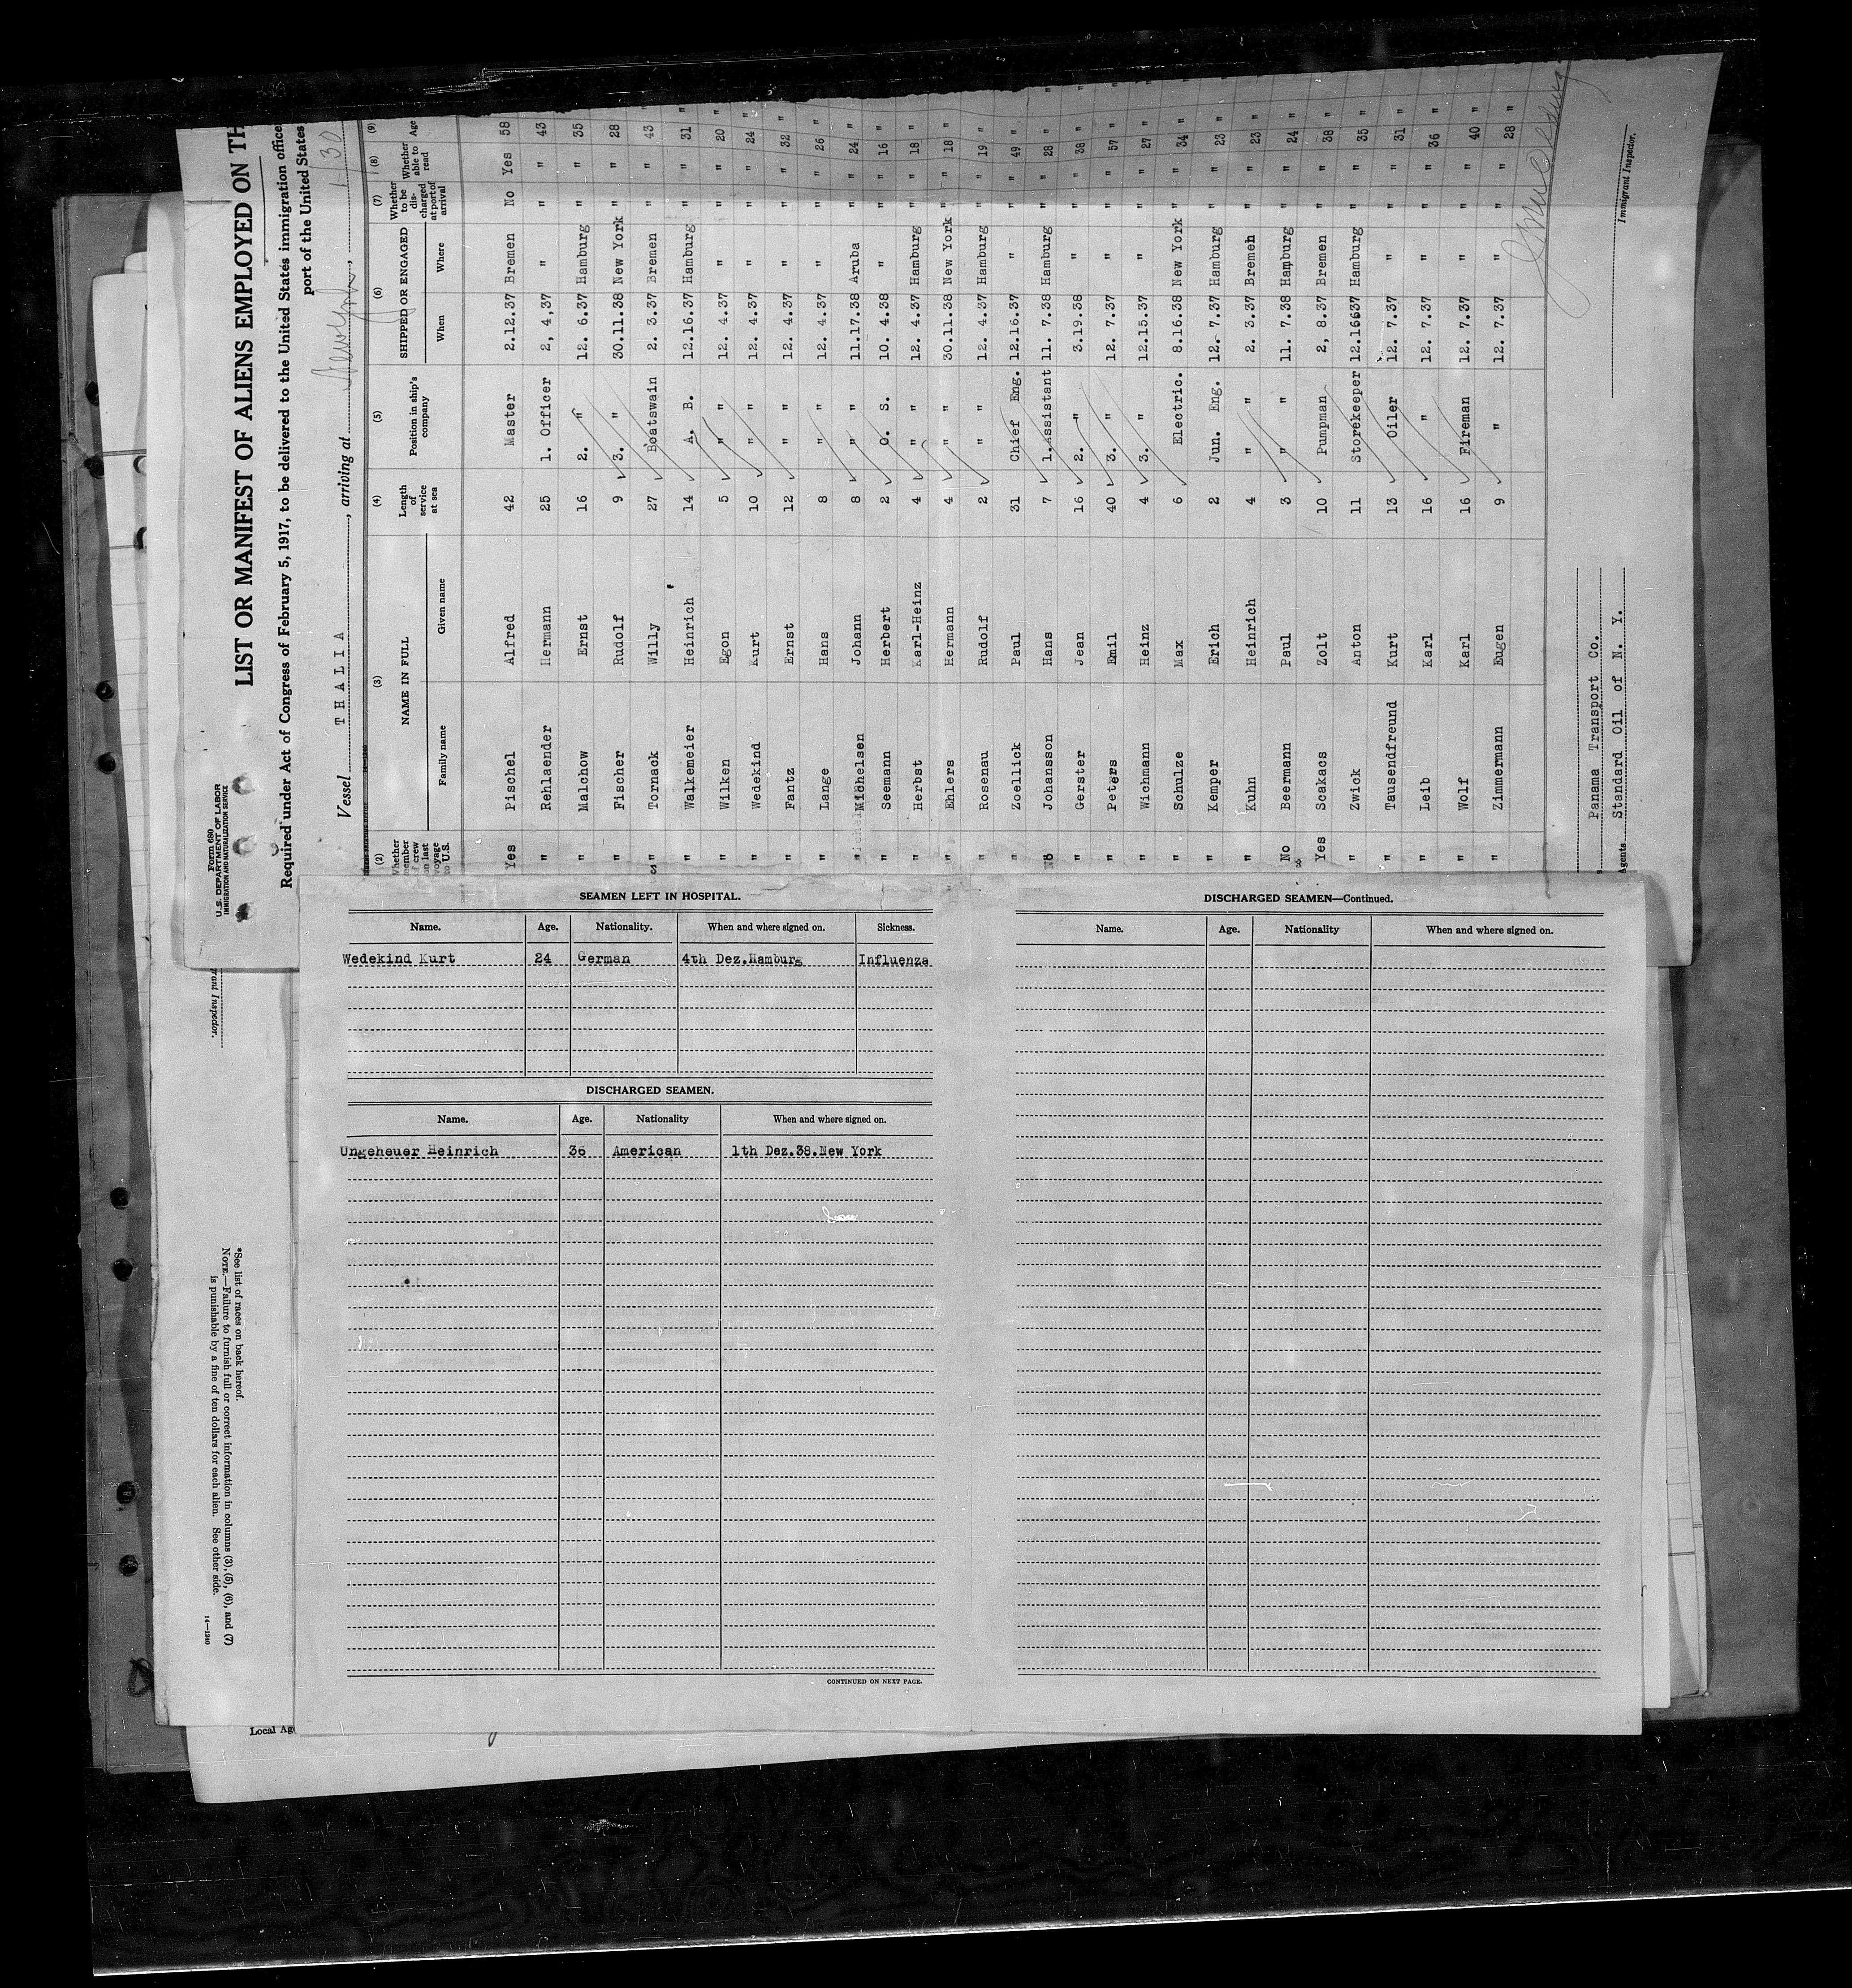 Form 689
U.S. DEPARTMENT OF LABOR
IMMIGRATION AND NATURALIZATION SERVICE
LIST OR MANIFEST OF ALIENS EMPLOYED ON TH
Required under Act of Congress of February 5, 1917, to be delivered to the United States immigration office
port of the United States
Vessel THALIA, arriving at
(2) (3) (4) (5) (6) (7) (8) (9)
NAME IN FULL
SHIPPED OR ENGAGED
Family name Given name Length of service at sea Position in ship's company When Where Whether to be discharged at port of arrival Whether able to read Age
Yes Pischel Alfred 42 Master 2.12.37 Bremen No Yes 58
" Rehlaender Hermann 25 1. Officer 2, 4,37 " " " 43 "
" Malchow Ernst 16 2. " 12. 6.37 Hamburg " " 35 "
" Fischer Rudolf 9 3. " 30.11.38 New York " " 28 "
" Tornack Willy 27 Boatswain 2. 3.37 Bremen " " 43 "
" Walkemeier Heinrich 14 A. B. 12.16.37 Hamburg " " 31 "
" Wilken Egon 5 " 12. 4.37 " " " 20 "
" Wedekind Kurt 10 " 12. 4.37 " " " 24 "
" Fantz Ernst 12 " 12. 4.37 " " " 32 "
" Lange Hans 8 " 12. 4.37 " " " 26 "
" Michelsen Johann 8 " 11.17.38 Aruba " " 24 "
" Seemann Herbert 2 O. S. 10. 4.38 " " " 16 "
" Herbst Karl-Heinz 4 " 12. 4.37 Hamburg " " 18 "
" Ehlers Hermann 4 " 30.11.38 New York " " 18 "
" Rosenau Rudolf 2 " 12. 4.37 Hamburg " " 19 "
" Zoellick Paul 31 Chief Eng. 12.16.37 " " " 49 "
No Johansson Hans 7 1.Assistant 11. 7.38 Hamburg " " 28 "
" Gerster Jean 16 2. " 3.19.38 " " " 38 "
" Peters Emil 40 3. " 12. 7.37 " " " 57 "
" Wichmann Heinz 4 3. " 12.15.37 " " " 27 "
" Schulze Max 6 Electric. 8.16.38 New York " " 34 "
" Kemper Erich 2 Jun. Eng. 12. 7.37 Hamburg " " 23 "
" Kuhn Heinrich 4 " " 2. 3.37 Bremen " " 23 "
No Beermann Paul 3 " " 11. 7.38 Hamburg " " 24 "
Yes Scakacs Zolt 10 Pumpman 2, 8.37 Bremen " " 38 "
" Zwick Anton 11 Storekeeper 12.16637 Hamburg " " 35 "
" Tausendfreund Kurt 13 Oiler 12. 7.37 " " " 31 "
" Leib Karl 16 " 12. 7.37 " " " 36 "
" Wolf Karl 16 Fireman 12. 7.37 " " " 40 "
" Zimmermann Eugen 9 " 12. 7.37 " " " 28 "
Panama Transport Co.
Agents Standard Oil of N. Y.
Immigrant Inspector.
SEAMEN LEFT IN HOSPITAL.
Name. Age. Nationality. When and where signed on. Sickness.
Wedekind Kurt 24 German 4th Dez.Hamburg Influenza
DISCHARGED SEAMEN.
Name. Age. Nationality When and where signed on.
Ungeheuer Heinrich 36 American 1th Dez.38.New York
CONTINUED ON NEXT PAGE.
DISCHARGED SEAMEN—Continued.
Name. Age. Nationality When and where signed on.
rant Inspector.
*See list of races on back hereof.
NOTE.—Failure to furnish full or correct information in columns (3), (5), (6), and (7)
is punishable by a fine of ten dollars for each alien. See other side.
14—1240
Local Ag